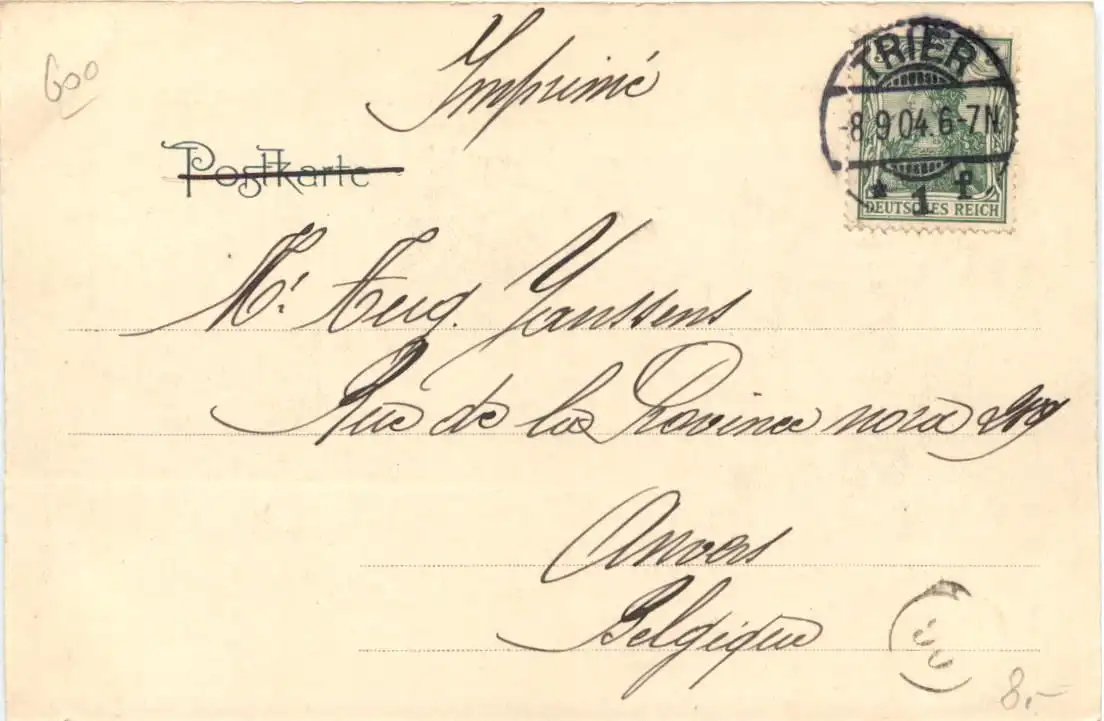 600
Imprimé
Postkarte
TRIER
-8.9.04.6-7N.
* 1 f.
DEUTSCHES REICH
Mr. Aug. Janssens
Rue de la Province nord
Anvers
Belgique
8.-